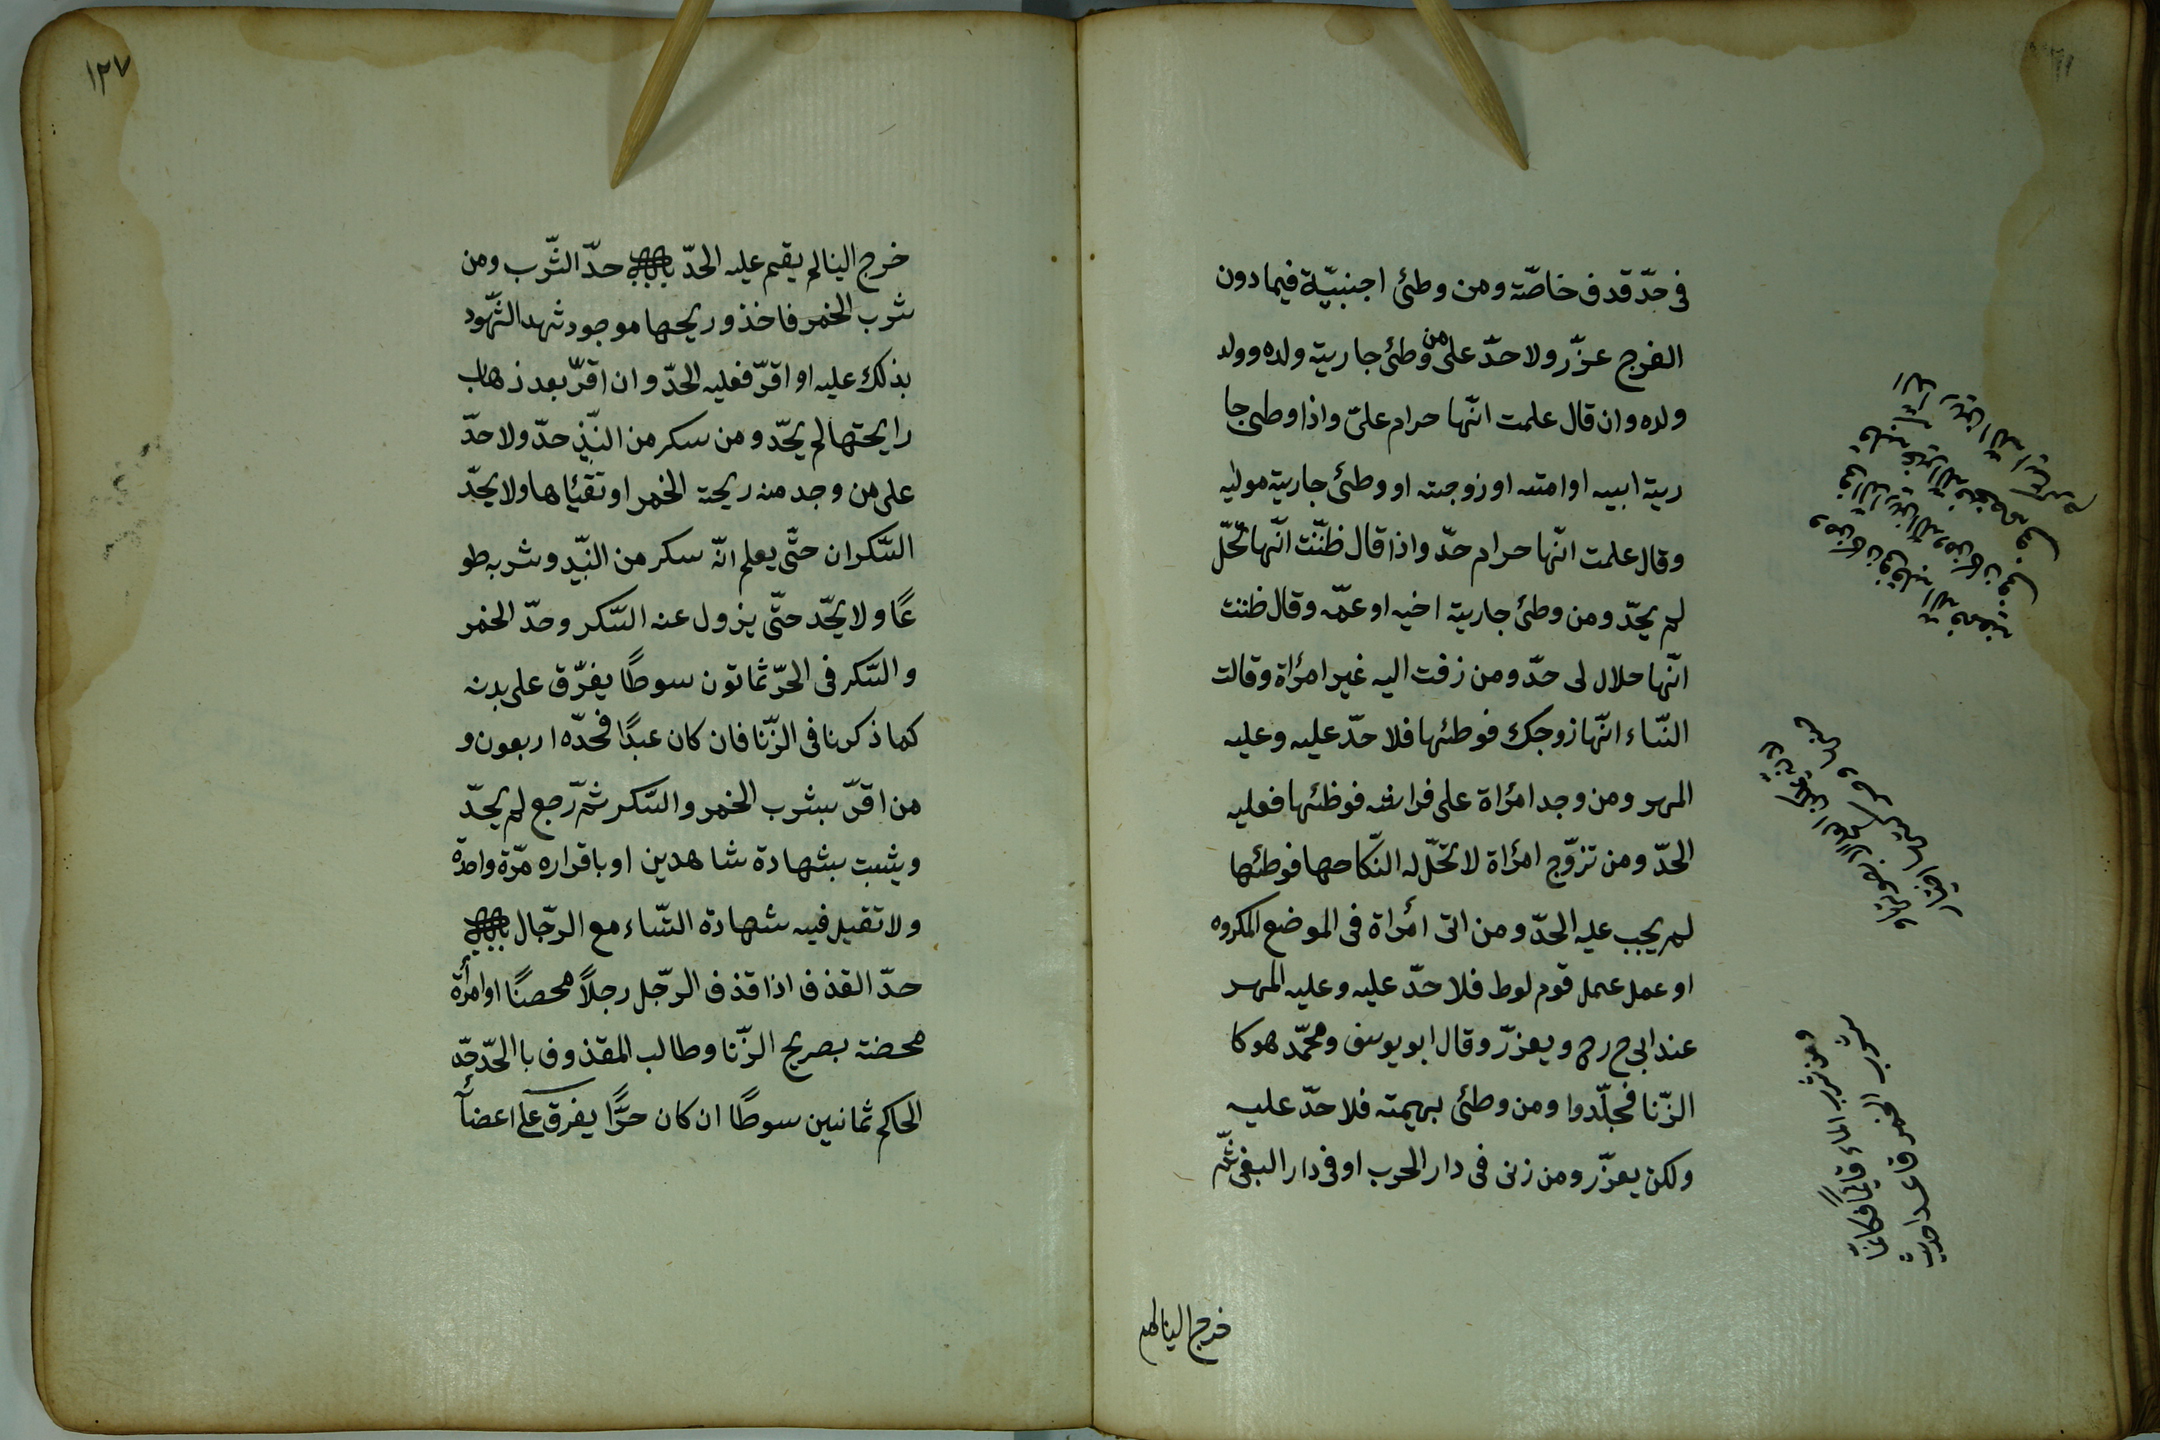 فى حدّ قدف خاصّة ومن وطئ اجنبيّة فيما دون
الفرج عزّر ولا حدّ على من وطئ جارية ولده وولد
ولده وان قال علمت انّها حرام علىّ واذا وطى جا
رية ابيه او امته او زوجته او وطئ جارية موليه
وقال علمت انّها حرام حدّ واذا قال ظنّنت انّها تحلّ
لم يحدّ ومن وطئ جارية اخيه او عمّه وقال ظننت
انّها حلال لى حدّ ومن زفت اليه غير امرٔاة وقالت
النّساء انّها زوجك فوطئها فلا حدّ عليه وعليه
المهر ومن وجد امرٔاة على فراشه فوظئها فعليه
الحدّ ومن تزوّج امرٔاة لا تحلّ له النّكاحها فوطئها
لم يجب عليه الحدّ ومن اتى امرٔاة فى الموضع المكروه
او عمل عمل قوم لوط فلا حدّ عليه وعليه المهر
عند ابى ح رح ويعزرّ وقال ابو يوسف ومحمّد هو كا
الزّنا فجلّدوا ومن وطئ بهيمته فلا حدّ عليه
ولكن يعزّر ومن زنى فى دار الحرب او فى دار البغى ثمّ
خرج الينا لم
ومن شرب الماء قايمًا فكانمّا
شرب الخمر قاعدا حديث
١٢٧
خرج الينا لم يقم عليه الحدّ باب حدّ الشّرب ومن
شرب الخمر فاخذ وريحها موجود شهد الشّهود
بذلك عليه او اقرّ فعليه الحدّ وان اقرّ بعد ذهاب
رايحتها لم يحدّ ومن سكر من النّبذ حدّ ولا حدّ
على من وجد منه ريحة الخمر او تقئاها ولا يحدّ
السّكران حتّى يعلم انّه سكر من النّبيد وشربه طو
عًا ولا يحدّ حتّى يزول عنه السّكر وحدّ الخمر
والسّكر فى الحرّ ثمانون سوطًا يفرّق على بدنه
كما ذكرنا فى الزّنا فان كان عبدًا فحدّه اربعون و
من اقرّ بشرب الخمر والسّكر ثمّ رجع لم يحدّ
ويثبت بشهادة شاهدين او باقراره مرّة واحدة
ولا تقيل فيه شهادة النّساء مع الرّجال باب
حدّ القذف اذا قذف الرّجل رجلاً محصنًا او امرأة
محضنة بصريح الزّنا وطالب المقذوف باالحدّ حدّه
الحاكم ثمانين سوطًا ان كان حرًّا يفرق على اعضآ